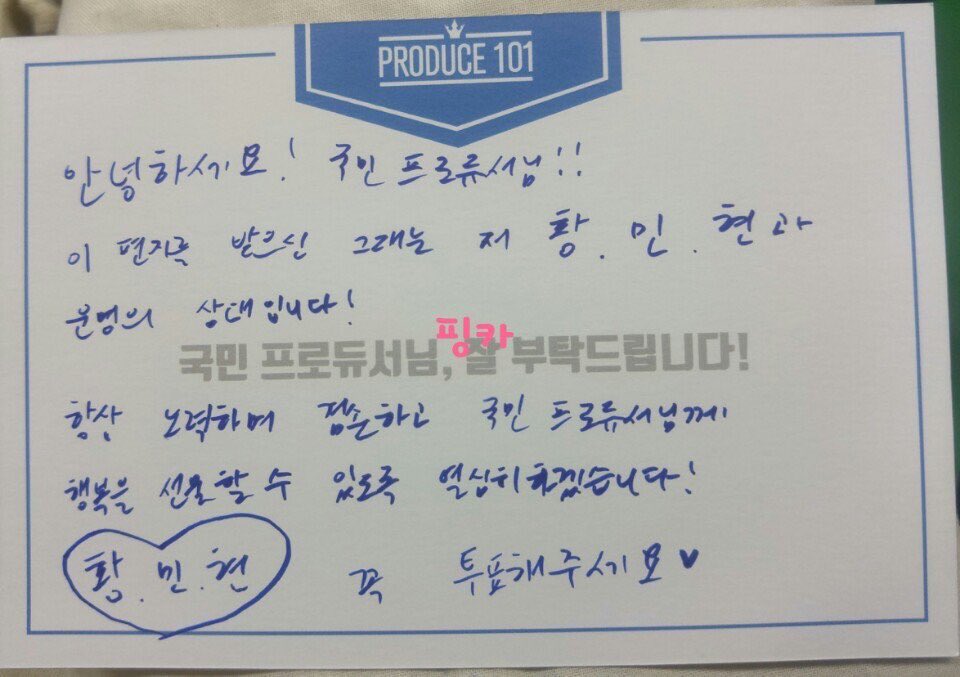 PRODUCE 101
안녕하세요! 국민 프로듀서님!!
이 편지를 받으신 그대는 저 황.민.현과
운명의 상대입니다!
핑카
국민 프로듀서님, 잘 부탁드립니다!
항상 노력하며 겸손하고 국민 프로듀서님께
행복을 선물할 수 있도록 열심히하겠습니다!
황.민.현 꼭 투표해주세요♥